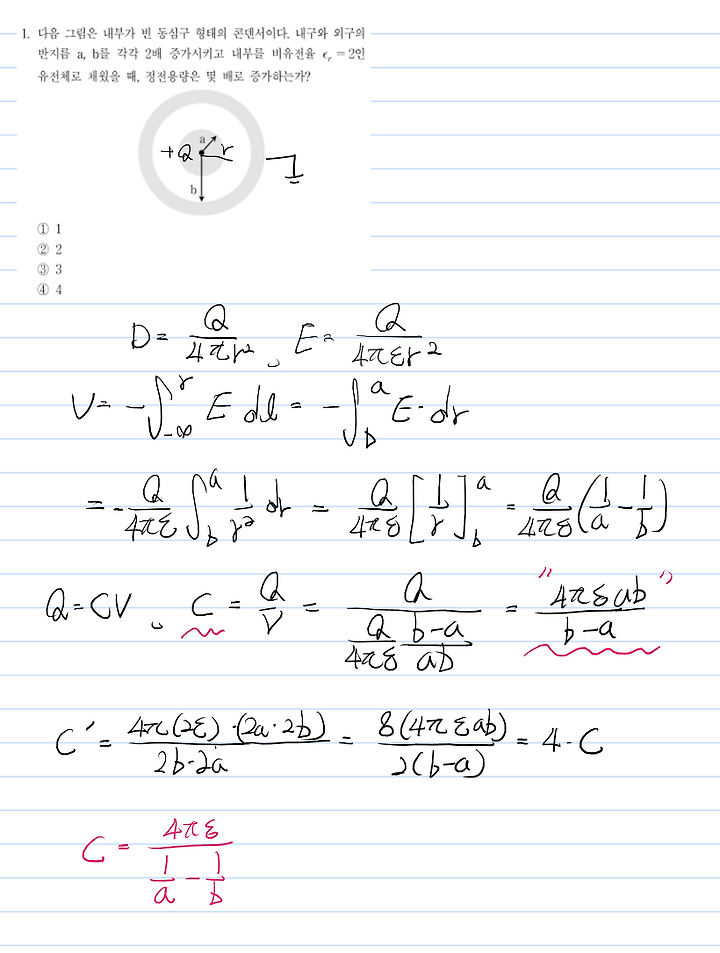 1. 다음 그림은 내부가 빈 동심구 형태의 콘덴서이다. 내구와 외구의
반지름 a, b를 각각 2배 증가시키고 내부를 비유전율 ϵᵣ = 2인
유전체로 채웠을 때, 정전용량은 몇 배로 증가하는가?
a
+Q r
b
① 1
② 2
③ 3
④ 4
D = Q/(4πr²), E = Q/(4πεr²)
V = -∫_{-∞}^{r} E dl = -∫_{b}^{a} E·dr
= -Q/(4πε) ∫_{b}^{a} 1/r² dr = Q/(4πε) [1/r]_{b}^{a} = Q/(4πε) (1/a - 1/b)
Q = CV, C = Q/V = Q/(Q/(4πε) (b-a)/(ab)) = "4πεab/(b-a)"
C' = 4π(2ε)·(2a·2b)/(2b-2a) = 8(4πεab)/(2(b-a)) = 4·C
C = 4πε/(1/a - 1/b)